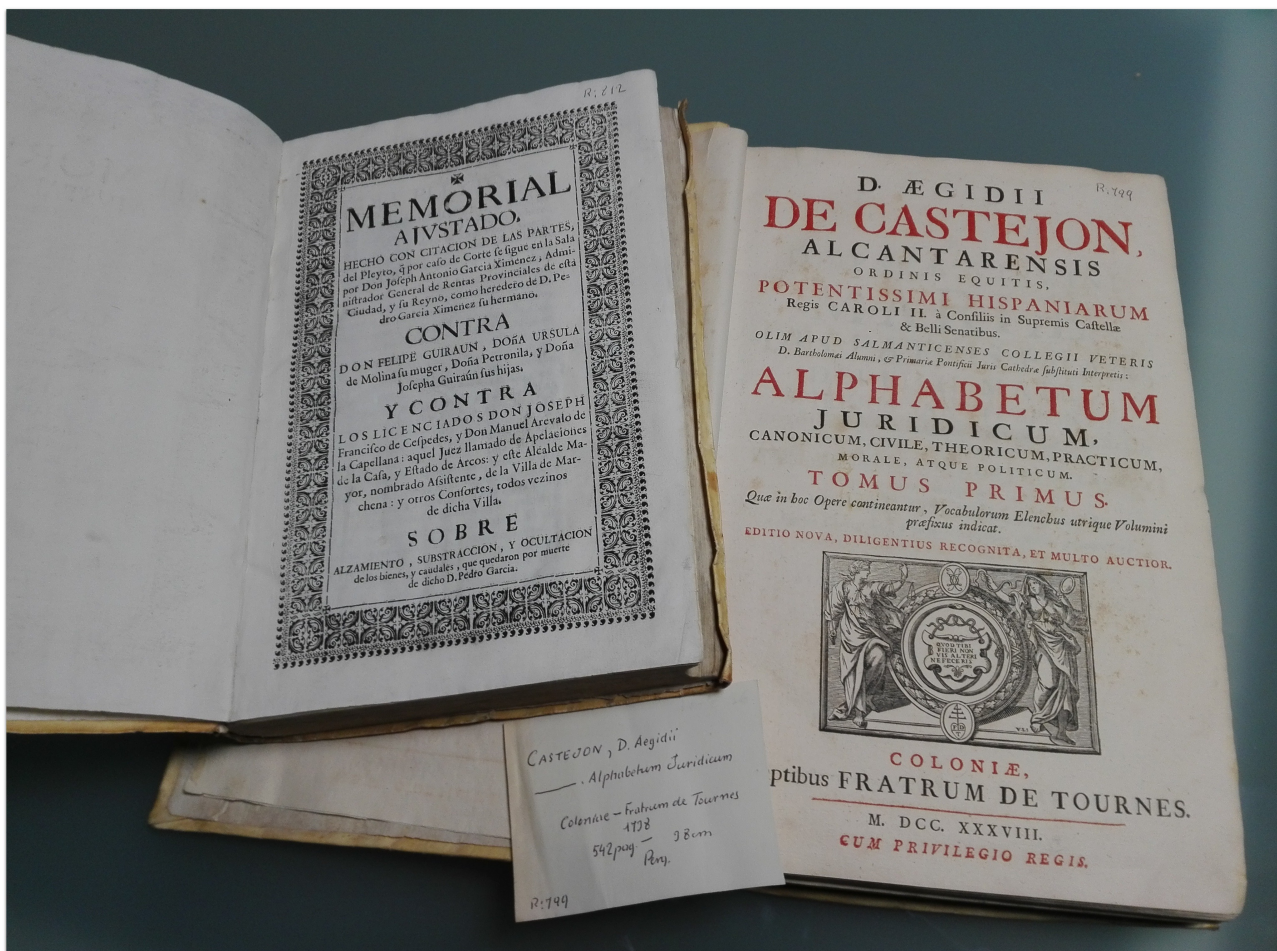 R: 612
MEMORIAL
AJVSTADO,
HECHO CON CITACION DE LAS PARTES,
del Pleyto, q̃ por caso de Corte se sigue en la Sala
por Don Joseph Antonio Garcia Ximenez, Admi-
nistrador General de Rentas Provinciales de esta
Ciudad, y su Reyno, como heredero de D. Pe-
dro Garcia Ximenez su hermano.
CONTRA
DON FELIPE GUIRAUN, DOña URSULA
de Molina su muger, Doña Petronila, y Doña
Josepha Guiraún sus hijas.
Y CONTRA
LOS LICENCIADOS DON JOSEPH
Francisco de Cespedes, y Don Manuel Arevalo de
la Capellana: aquel Juez llamado de Apelaciones
de la Casa, y Estado de Arcos: y este Alcalde Ma-
yor, nombrado Assistente, de la Villa de Mar-
chena: y otros Consortes, todos vezinos
de dicha Villa.
SOBRE
ALZAMIENTO, SUBSTRACCION, Y OCULTACION
de los bienes, y caudales, que quedaron por muerte
de dicho D. Pedro Garcia.
R. 799
D. ÆGIDII
DE CASTEJON,
ALCANTARENSIS
ORDINIS EQUITIS,
POTENTISSIMI HISPANIARUM
Regis CAROLI II. à Consiliis in Supremis Castellæ
& Belli Senatibus.
OLIM APUD SALMANTICENSES COLLEGII VETERIS
D. Bartholomæi Alumni, & Primariæ Pontificii Juris Cathedræ substituti Interpretis:
ALPHABETUM
JURIDICUM,
CANONICUM, CIVILE, THEORICUM, PRACTICUM,
MORALE, ATQUE POLITICUM.
TOMUS PRIMUS.
Quæ in hoc Opere contineantur, Vocabulorum Elenchus utrique Volumini
præfixus indicat.
EDITIO NOVA, DILIGENTIUS RECOGNITA, ET MULTO AUCTIOR.
QUOD TIBI
FIERI NON
VIS ALTERI
NE FECERIS
COLONIÆ,
ptibus FRATRUM DE TOURNES.
M. DCC. XXXVIII.
CUM PRIVILEGIO REGIS.
CASTEJON, D. Aegidii
____. Alphabetum Juridicum
Coloniae – Fratrum de Tournes
1738
542 pag — 38 cm
Perg.
R: 799